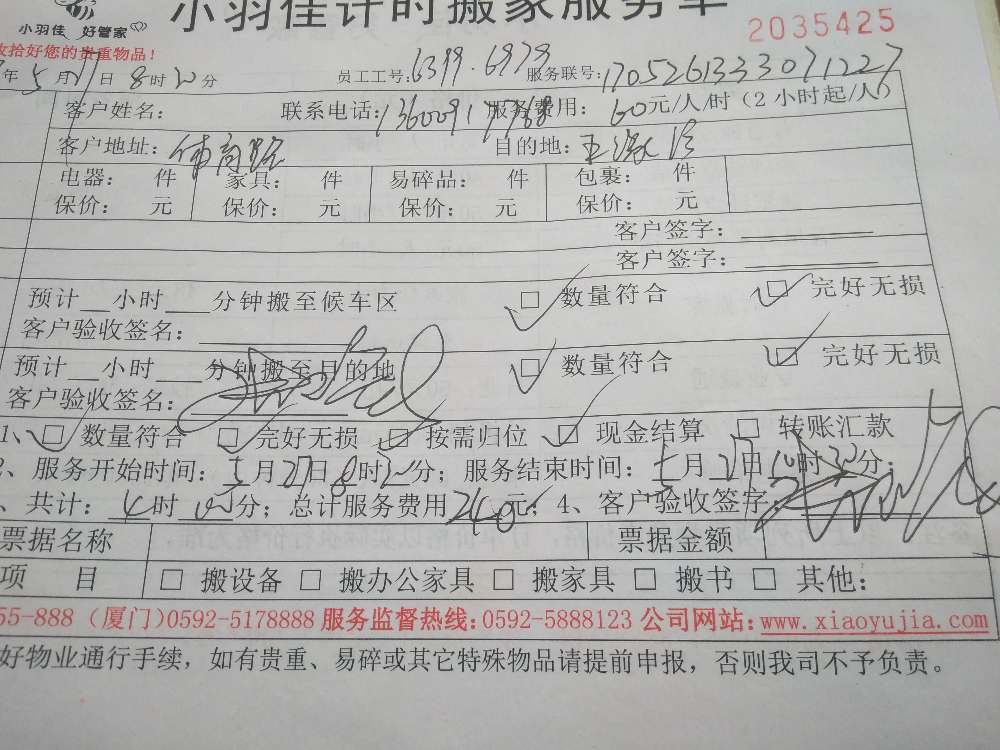 小羽佳计时搬家服务单
小羽佳 好管家
2035425
收拾好您的贵重物品!
年5月27日8时30分 员工工号:6399.6978 服务联号:1705261333071227
客户姓名: 联系电话: 服务费用:60元/人/时(2小时起/人)
客户地址:体育路 目的地:
电器: 件 家具: 件 易碎品: 件 包裹: 件
保价: 元 保价: 元 保价: 元 保价: 元
客户签字:
客户签字:
预计__小时___分钟搬至候车区 ☑ 数量符合 ☑ 完好无损
客户验收签名:
预计__小时___分钟搬至目的地 ☑ 数量符合 ☑ 完好无损
客户验收签名:
1、☑ 数量符合 ☑ 完好无损 ☑ 按需归位 ☑ 现金结算 □ 转账汇款
、服务开始时间:5月27日8时30分;服务结束时间:5月27日10时30分;
、共计:4时00分;总计服务费用240元;4、客户验收签字:
票据名称 票据金额
项 目 □ 搬设备 □ 搬办公家具 □ 搬家具 □ 搬书 □ 其他:
55-888 (厦门)0592-5178888 服务监督热线:0592-5888123 公司网站:www.xiaoyujia.com
好物业通行手续,如有贵重、易碎或其它特殊物品请提前申报,否则我司不予负责。